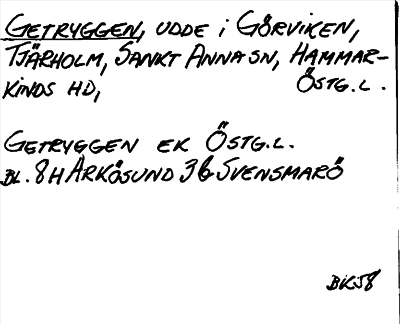 GETRYGGEN, UDDE I GÖRVIKEN,
TJÄRHOLM, SANKT ANNA SN, HAMMAR-
KINDS HD, ÖSTG.L.
GETRYGGEN EK ÖSTG.L.
BL. 8H ARKÖSUND 3b SVENSMARÖ